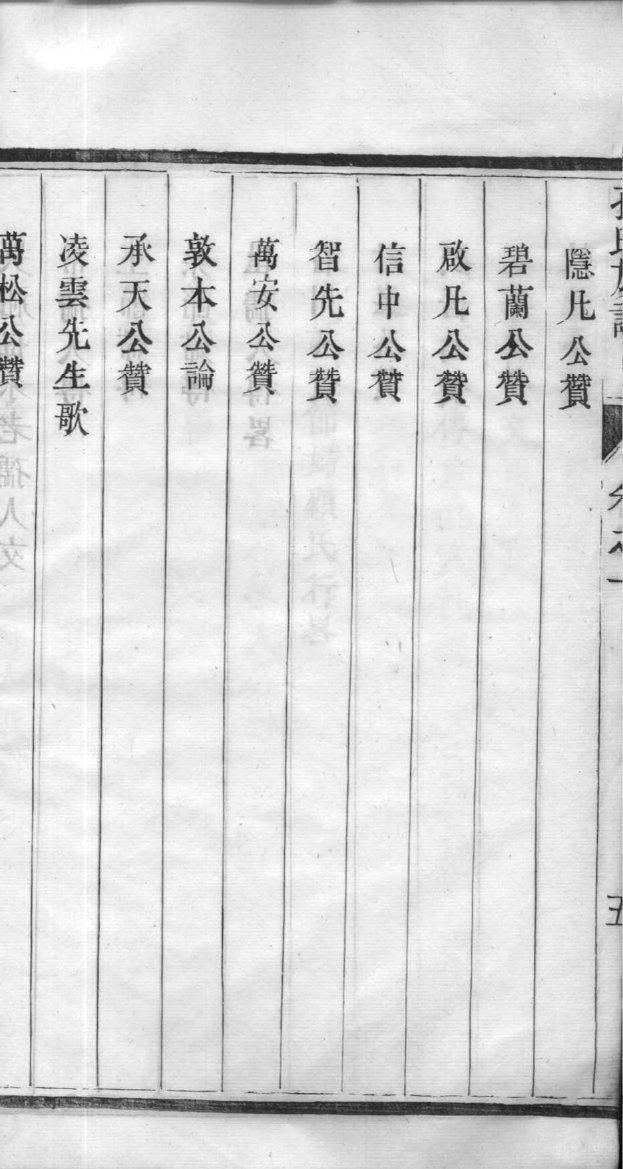 隱凡公贊
碧蘭公贊
啟凡公贊
信中公贊
智先公贊
萬安公贊
敦本公論
承天公贊
凌雲先生歌
萬松公贊